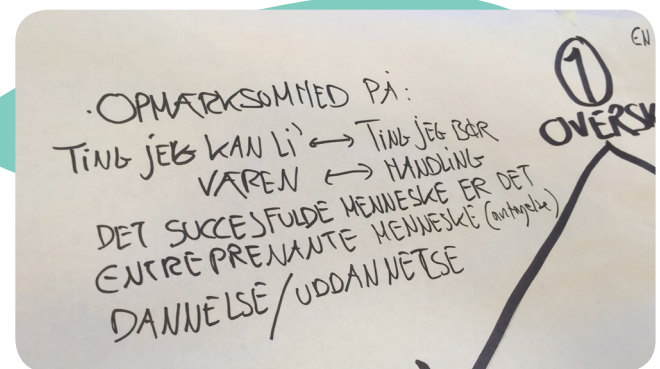 · OPMÆRKSOMHED PÅ:
TING JEG KAN LI' ↔ TING JEG BØR
VÆREN ↔ HANDLING
DET SUCCESFULDE MENNESKE ER DET
ENTREPRENANTE MENNESKE (antagelse)
DANNELSE/UDDANNELSE
1
EN
OVERSK